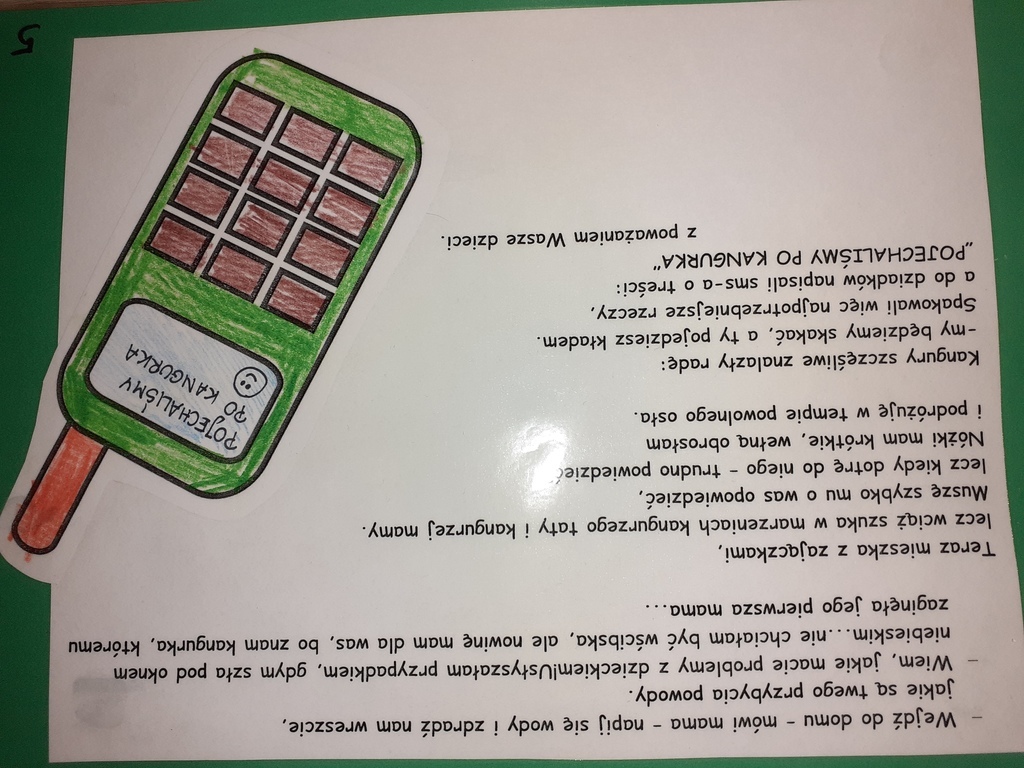 – Wejdź do domu – mówi mama – napij się wody i zdradź nam wreszcie,
jakie są twego przybycia powody.
– Wiem, jakie macie problemy z dzieckiem!Usłyszałam przypadkiem, gdym szła pod oknem
niebieskim...nie chciałam być wścibska, ale nowinę mam dla was, bo znam kangurka, któremu
zaginęła jego pierwsza mama...
Teraz mieszka z zajączkami,
lecz wciąż szuka w marzeniach kangurzego taty i kangurzej mamy.
Muszę szybko mu o was opowiedzieć,
lecz kiedy dotrę do niego – trudno powiedzieć
Nóżki mam krótkie, wełną obrosłam
i podróżuję w tempie powolnego osła.
Kangury szczęśliwe znalazły radę:
–my będziemy skakać, a ty pojedziesz kładem.
Spakowali więc najpotrzebniejsze rzeczy,
a do dziadków napisali sms-a o treści:
„POJECHALIŚMY PO KANGURKA”
z poważaniem Wasze dzieci.
POJECHALIŚMY
PO KANGURKA
5